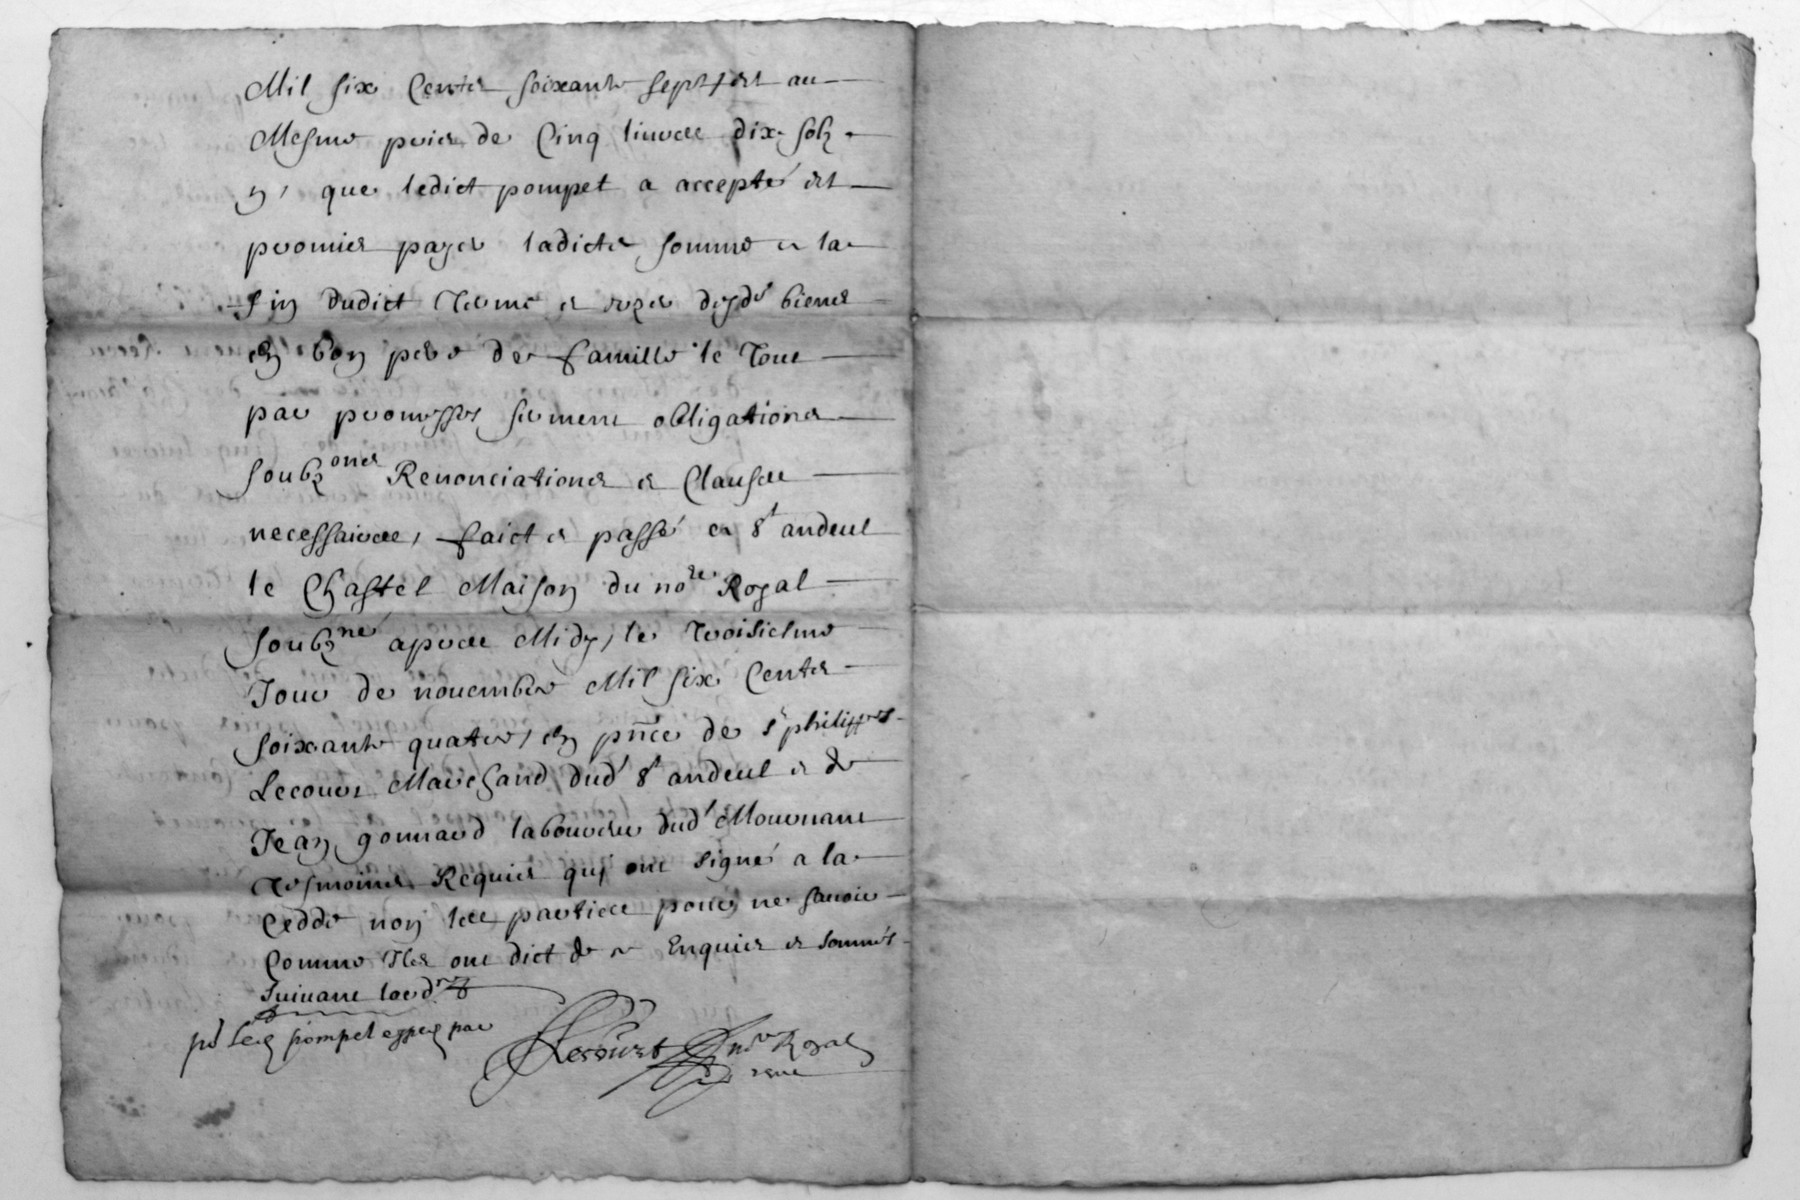 Mil six Centz soixante sept, et au
Mesme prix de Cinq livres dix solz
que ledict pompet a accepté et
promis payer ladicte somme a la
fin dudict Terme et uzer desdz biens
en bon pere de famille le Tout
par promesses serment obligations
soubzons Renonciations et Clauses
necessaires, faict et passé a st andeul
le Chastel Maison du nore Royal
soubzné apres Midy, le Troisiesme
Jour de novembre Mil six Centz
soixante quatre, en pnce de sr philippes
Lecourt Marchand dudt st andeul et de
Jean gonnard laboureur dudt Mournant
Tesmoins Requis quj ont signé a la
Cedde non les parties pour ne sauoir
Comme Ilz ont dict de ce Enquis et sommés
suiuant lord
pr led pompet exped par
Lecourt no Royal